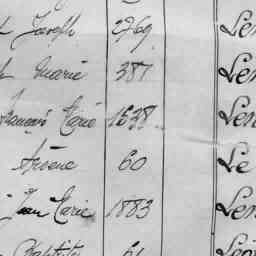 Joseph 2769 Le
Marie 387 Le
François Marie 1638 Le
Arsène 60 Le
Jean Marie 1883 Le
Baptiste 61